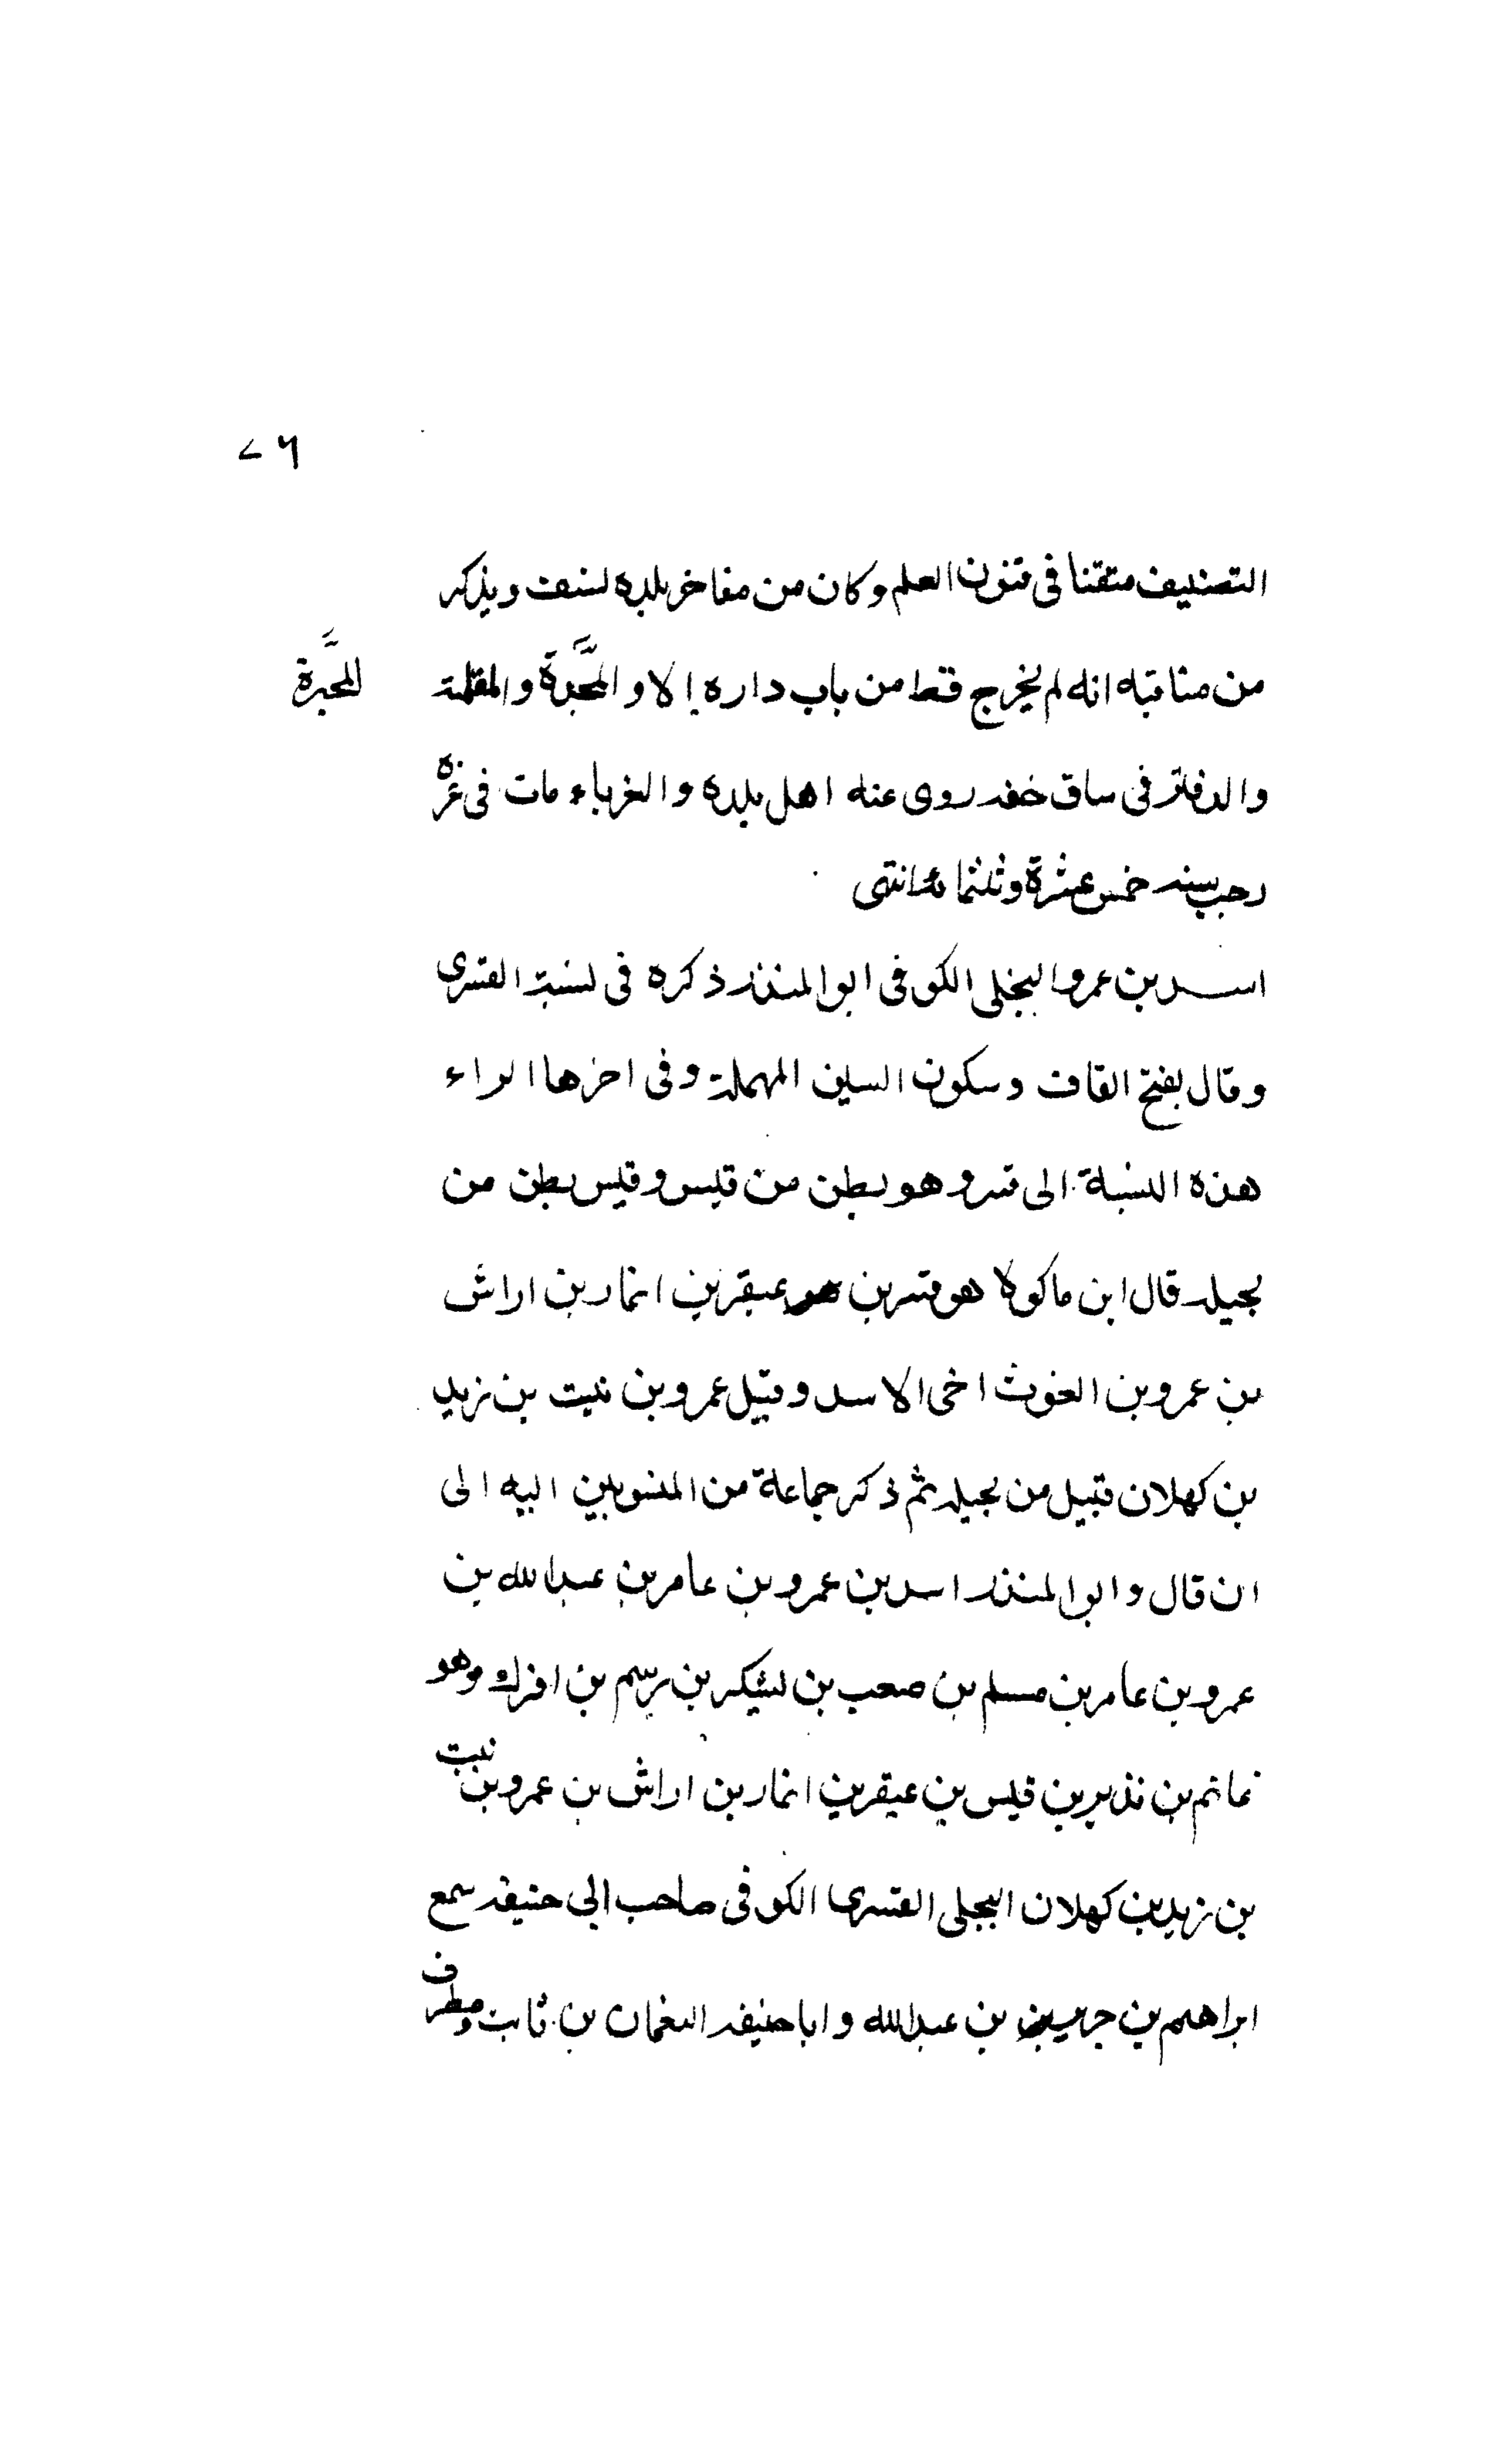 ٧٦
التصنيف متقنا فى فنون العلم وكان من مفاخر بلده لنسف ويذكر
من مناقبه انه لم يخرج قط من باب داره إلا و المحبرة والمقلمة
المحبرة
والدفاتر فى ساق خفه روى عنه اهل بلده والغرباء مات فى غرة
رجب سنه خمس عشرة وثلثمائة انتهى
اسد بن عمرو البجلى الكوفى ابوالمنذر ذكره فى نسبة القسرى
وقال بفتح القاف وسكون السين المهملة وفى اخرها الراء
هذه النسبة الى قسر وهو بطن من قيس وقيس بطن من
بجيله قال ابن ماكولا هو قسر بن عبقر بن انمار بن اراش
بن عمرو بن الغوث اخى الاسد وقيل عمرو بن نبت بن زيد
بن كهلان قبيل من بجيله ثم ذكر جماعة من المنسوبين اليه الى
ان قال وابوالمنذر اسد بن عمرو بن عامر بن عبدالله بن
عمرو بن عامر بن مسلم بن صعب بن يشكر بن رسم بن افرك وهو
غانم بن نذير بن قيس بن عبقر بن انمار بن اراش بن عمرو بن نبت
بن زيد بن كهلان البجلى القسرى الكوفى صاحب ابى حنيفه سمع
ابراهيم بن جرير بن عبدالله و اباحنيفه النعمان بن ثابت ومطرف